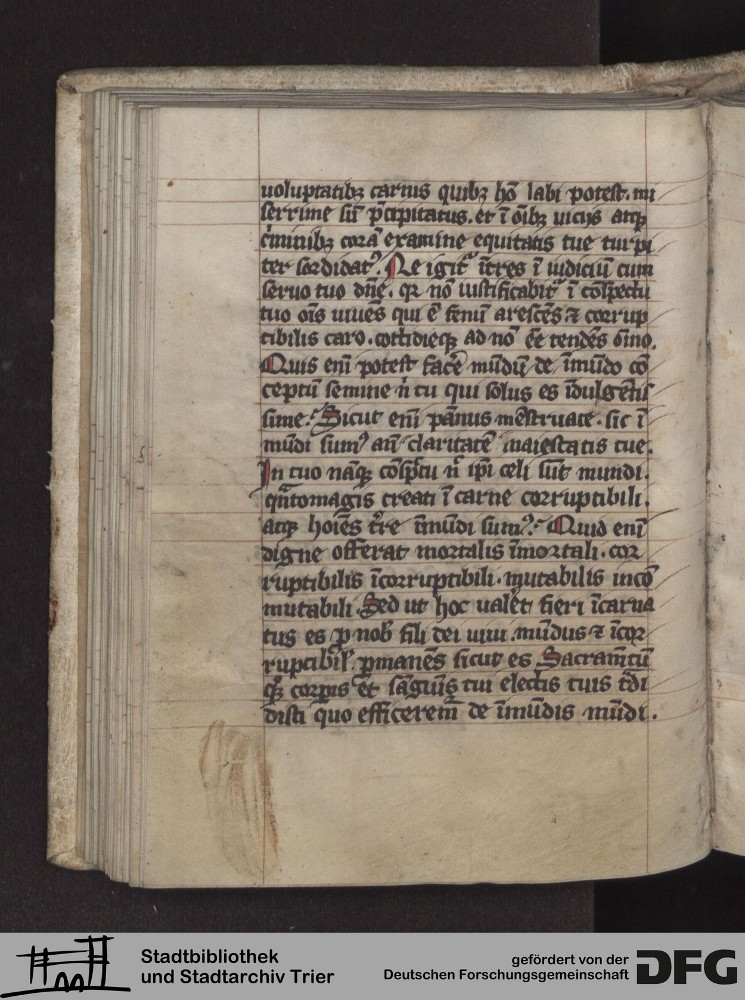 uoluptatibꝫ carnis quibꝫ hō labi potest. mi
serrime sū p̄cipitatus. et ī oībꝫ uicijs atqꝫ
c̄minibꝫ corā examine equitatis tue turpi
ter sordidatꝰ. Ne igit᷑ ītres ī iudiciū cum
seruo tuo dn̄e. qꝛ nō iustificabit᷑ ī cōspectu
tuo om̄s uiuēs qui ē fenū arescēs ⁊ corrup
tibilis caro. cottidieqꝫ ad nō eē tendēs oīno.
Quis enī potest facē mūdū de īmūdo cō
ceptū semine n̄ tu qui solus es īdulgētis
sime. Sicut enī pānus mēstruate. sic ī
mūdi sumꝰ an̄ claritatē maiestatis tue.
In tuo nāqꝫ cōspc̄tu n̄ ip̄i celi sūt mundi.
qn̄tomagis creati ī carne corruptibili.
atqꝫ hoīes t̄re īmūdi sumꝰ. Quid enī
digne offerat mortalis īmortali. cor
ruptibilis īcorruptibili. mutabilis incō
mutabili. Sed ut hoc ualet fieri īcarna
tus es ꝓ nob̄ fili dei uiui mūdus ⁊ īcor
ruptibil̕. ꝑmanēs sicut es Sacramn̄tū
qꝫ corpis et sāguīs tui electis tuis t̄di
disti quo efficerem̄ de īmūdis mūdi.
Stadtbibliothek
und Stadtarchiv Trier
gefördert von der
Deutschen Forschungsgemeinschaft
DFG